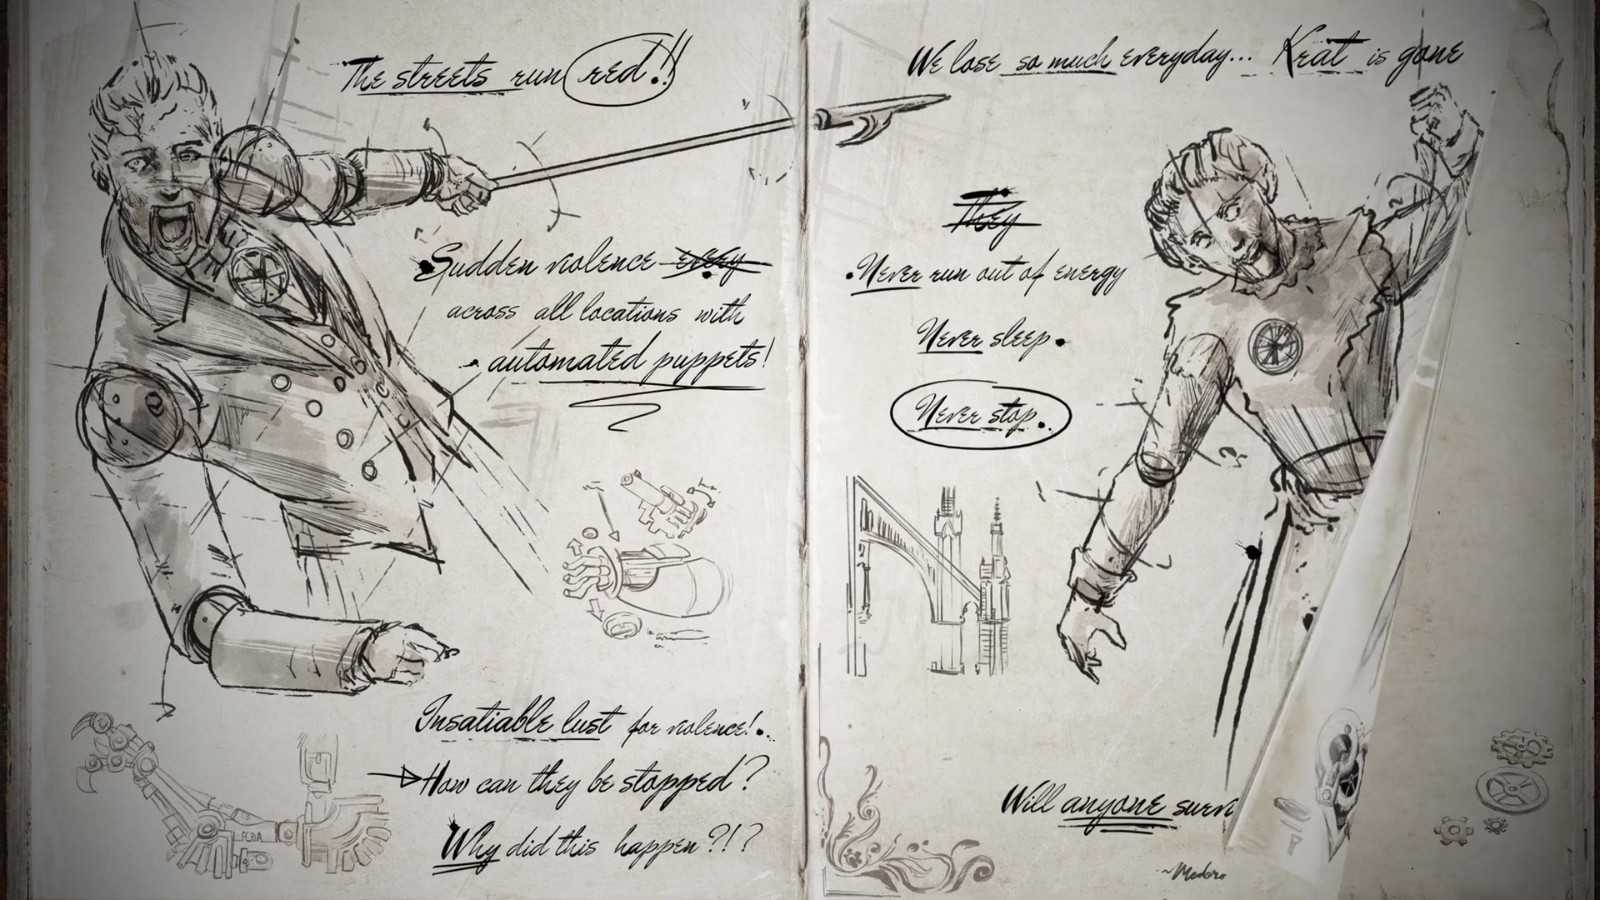 The streets run red!!
Sudden violence every
across all locations with
automated puppets!
Insatiable lust for violence!..
How can they be stopped?
Why did this happen?!?
We lose so much everyday... Krat is gone
They
Never run out of energy
Never sleep.
Never stop.
Will anyone surv
~Medoro